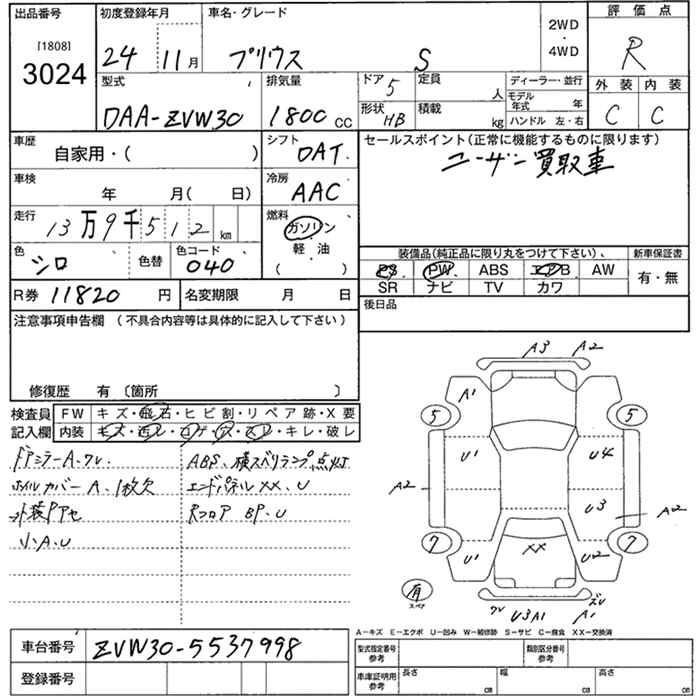 出品番号
[1808]
3024
初度登録年月
24 11月
車名・グレード
プリウス S
2WD
・
4WD
評価点
R
型式
DAA-ZVW30
排気量
1800 cc
ドア 5
定員 人
形状 HB
積載 kg
ディーラー・並行
モデル年式 年
ハンドル 左・右
外装 内装
C C
車歴
自家用・( )
シフト
DAT
車検
年 月( 日)
冷房
AAC
走行
13万9千512km
燃料
ガソリン
軽・油
( ・ )
色
シロ
色替
色コード
040
R券 11820 円
名変期限 月 日
セールスポイント(正常に機能するものに限ります)
ユーザー買取車
装備品(純正品に限り丸をつけて下さい)、
新車保証書
PS PW ABS エアB AW
有・無
SR ナビ TV カワ
後日品
注意事項申告欄 (不具合内容等は具体的に記入して下さい)
修復歴 有 〔箇所 〕
検査員
記入欄
FW キズ・飛石・ヒビ割・リペア跡・X要
内装 キズ・汚レ・コゲ・穴・スレ・キレ・破レ
ドアミラーA、ワレ、
ABS、横スベリランプ点灯
ホイルカバーA、1枚欠
エンドパネルXX、U
外装Pアセ
Rフロア BP、U
小A、U
A3 A2
A1
5 5
U1 U4
A2
U3 A2
7 7
U1 XX U2
有
スペア
ワレ U3A1 ズレ
A1
A-キズ E-エクボ U-凹み W-補修跡 S-サビ C-腐食 XX-交換済
車台番号 ZVW30-5537998
登録番号
型式指定番号
参考
類別区分番号
参考
車庫証明用
参考
長さ cm
幅 cm
高さ cm